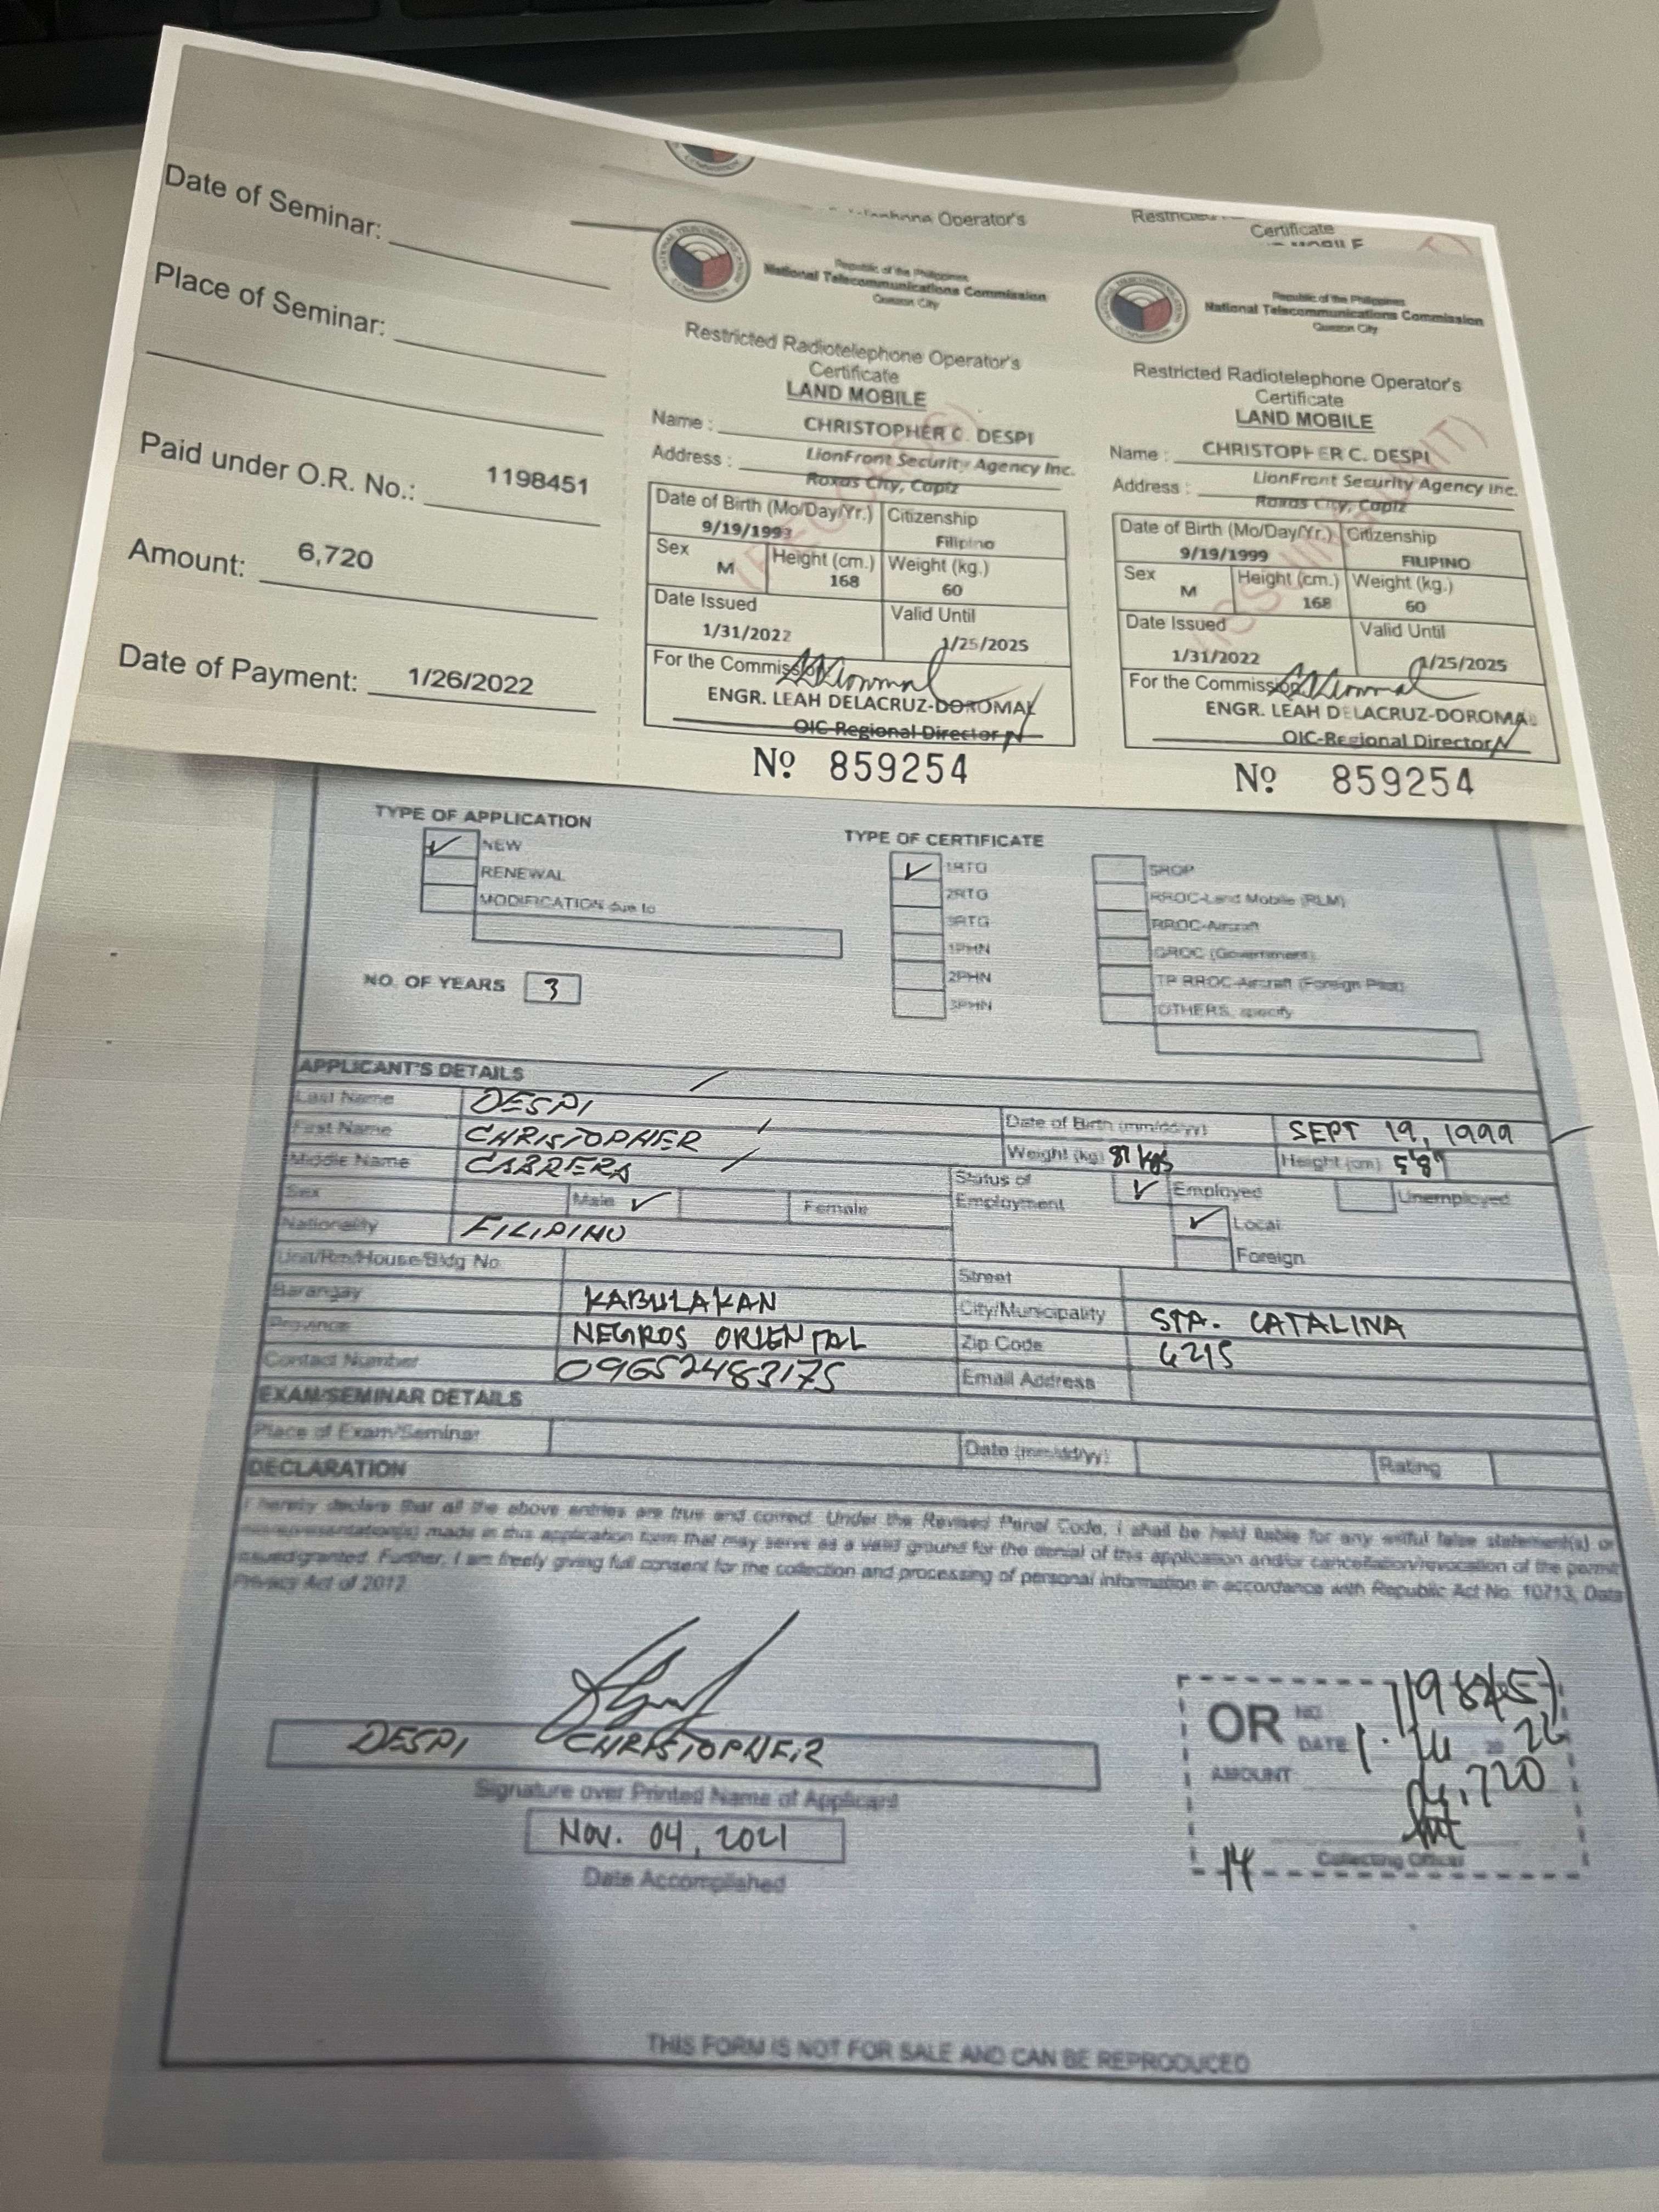 Date of Seminar:
Place of Seminar:
Paid under O.R. No.: 1198451
Amount: 6,720
Date of Payment: 1/26/2022
Operator's
Republic of the Philippines
National Telecommunications Commission
Quezon City
Restricted Radiotelephone Operator's
Certificate
LAND MOBILE
Name : CHRISTOPHER C. DESPI
Address : LionFront Security Agency Inc.
Roxas City, Capiz
Date of Birth (Mo/Day/Yr.) Citizenship
9/19/1993 Filipino
Sex Height (cm.) Weight (kg.)
M 168 60
Date Issued Valid Until
1/31/2022 1/25/2025
For the Commission
ENGR. LEAH DELACRUZ-DOROMAL
OIC-Regional Director
Nº 859254
Restricted
Certificate
Republic of the Philippines
National Telecommunications Commission
Quezon City
Restricted Radiotelephone Operator's
Certificate
LAND MOBILE
Name : CHRISTOPHER C. DESPI
Address : LionFront Security Agency Inc.
Roxas City, Capiz
Date of Birth (Mo/Day/Yr.) Citizenship
9/19/1999 FILIPINO
Sex Height (cm.) Weight (kg.)
M 168 60
Date Issued Valid Until
1/31/2022 1/25/2025
For the Commission
ENGR. LEAH DELACRUZ-DOROMAL
OIC-Regional Director
Nº 859254
TYPE OF APPLICATION
NEW
RENEWAL
MODIFICATION due to
NO. OF YEARS 3
TYPE OF CERTIFICATE
1RTG SROP
2RTG RROC-Land Mobile (RLM)
3RTG RROC-Aircraft
1PHN GROC (Government)
2PHN TP RROC-Aircraft (Foreign Pilot)
3PHN OTHERS, specify
APPLICANT'S DETAILS
Last Name DESPI
First Name CHRISTOPHER Date of Birth (mm/dd/yy) SEPT 19, 1999
Middle Name CABRERA Weight (kg) 81 kgs Height (cm) 5'8"
Sex Male Female Status of Employment Employed Unemployed
Nationality FILIPINO Local
Foreign
Unit/Rm/House/Bldg No. Street
Barangay KABULAKAN City/Municipality STA. CATALINA
Province NEGROS ORIENTAL Zip Code 6215
Contact Number 09652483175 Email Address
EXAM/SEMINAR DETAILS
Place of Exam/Seminar Date (mm/dd/yy) Rating
DECLARATION
I hereby declare that all the above entries are true and correct. Under the Revised Penal Code, I shall be held liable for any willful false statement(s) or
misrepresentation(s) made in this application form that may serve as a valid ground for the denial of this application and/or cancellation/revocation of the permit
issued/granted. Further, I am freely giving full consent for the collection and processing of personal information in accordance with Republic Act No. 10713, Data
Privacy Act of 2012.
DESPI CHRISTOPHER
Signature over Printed Name of Applicant
Nov. 04, 2021
Date Accomplished
OR NO.
DATE 20 22
AMOUNT 6,720
Collecting Officer
14
THIS FORM IS NOT FOR SALE AND CAN BE REPRODUCED